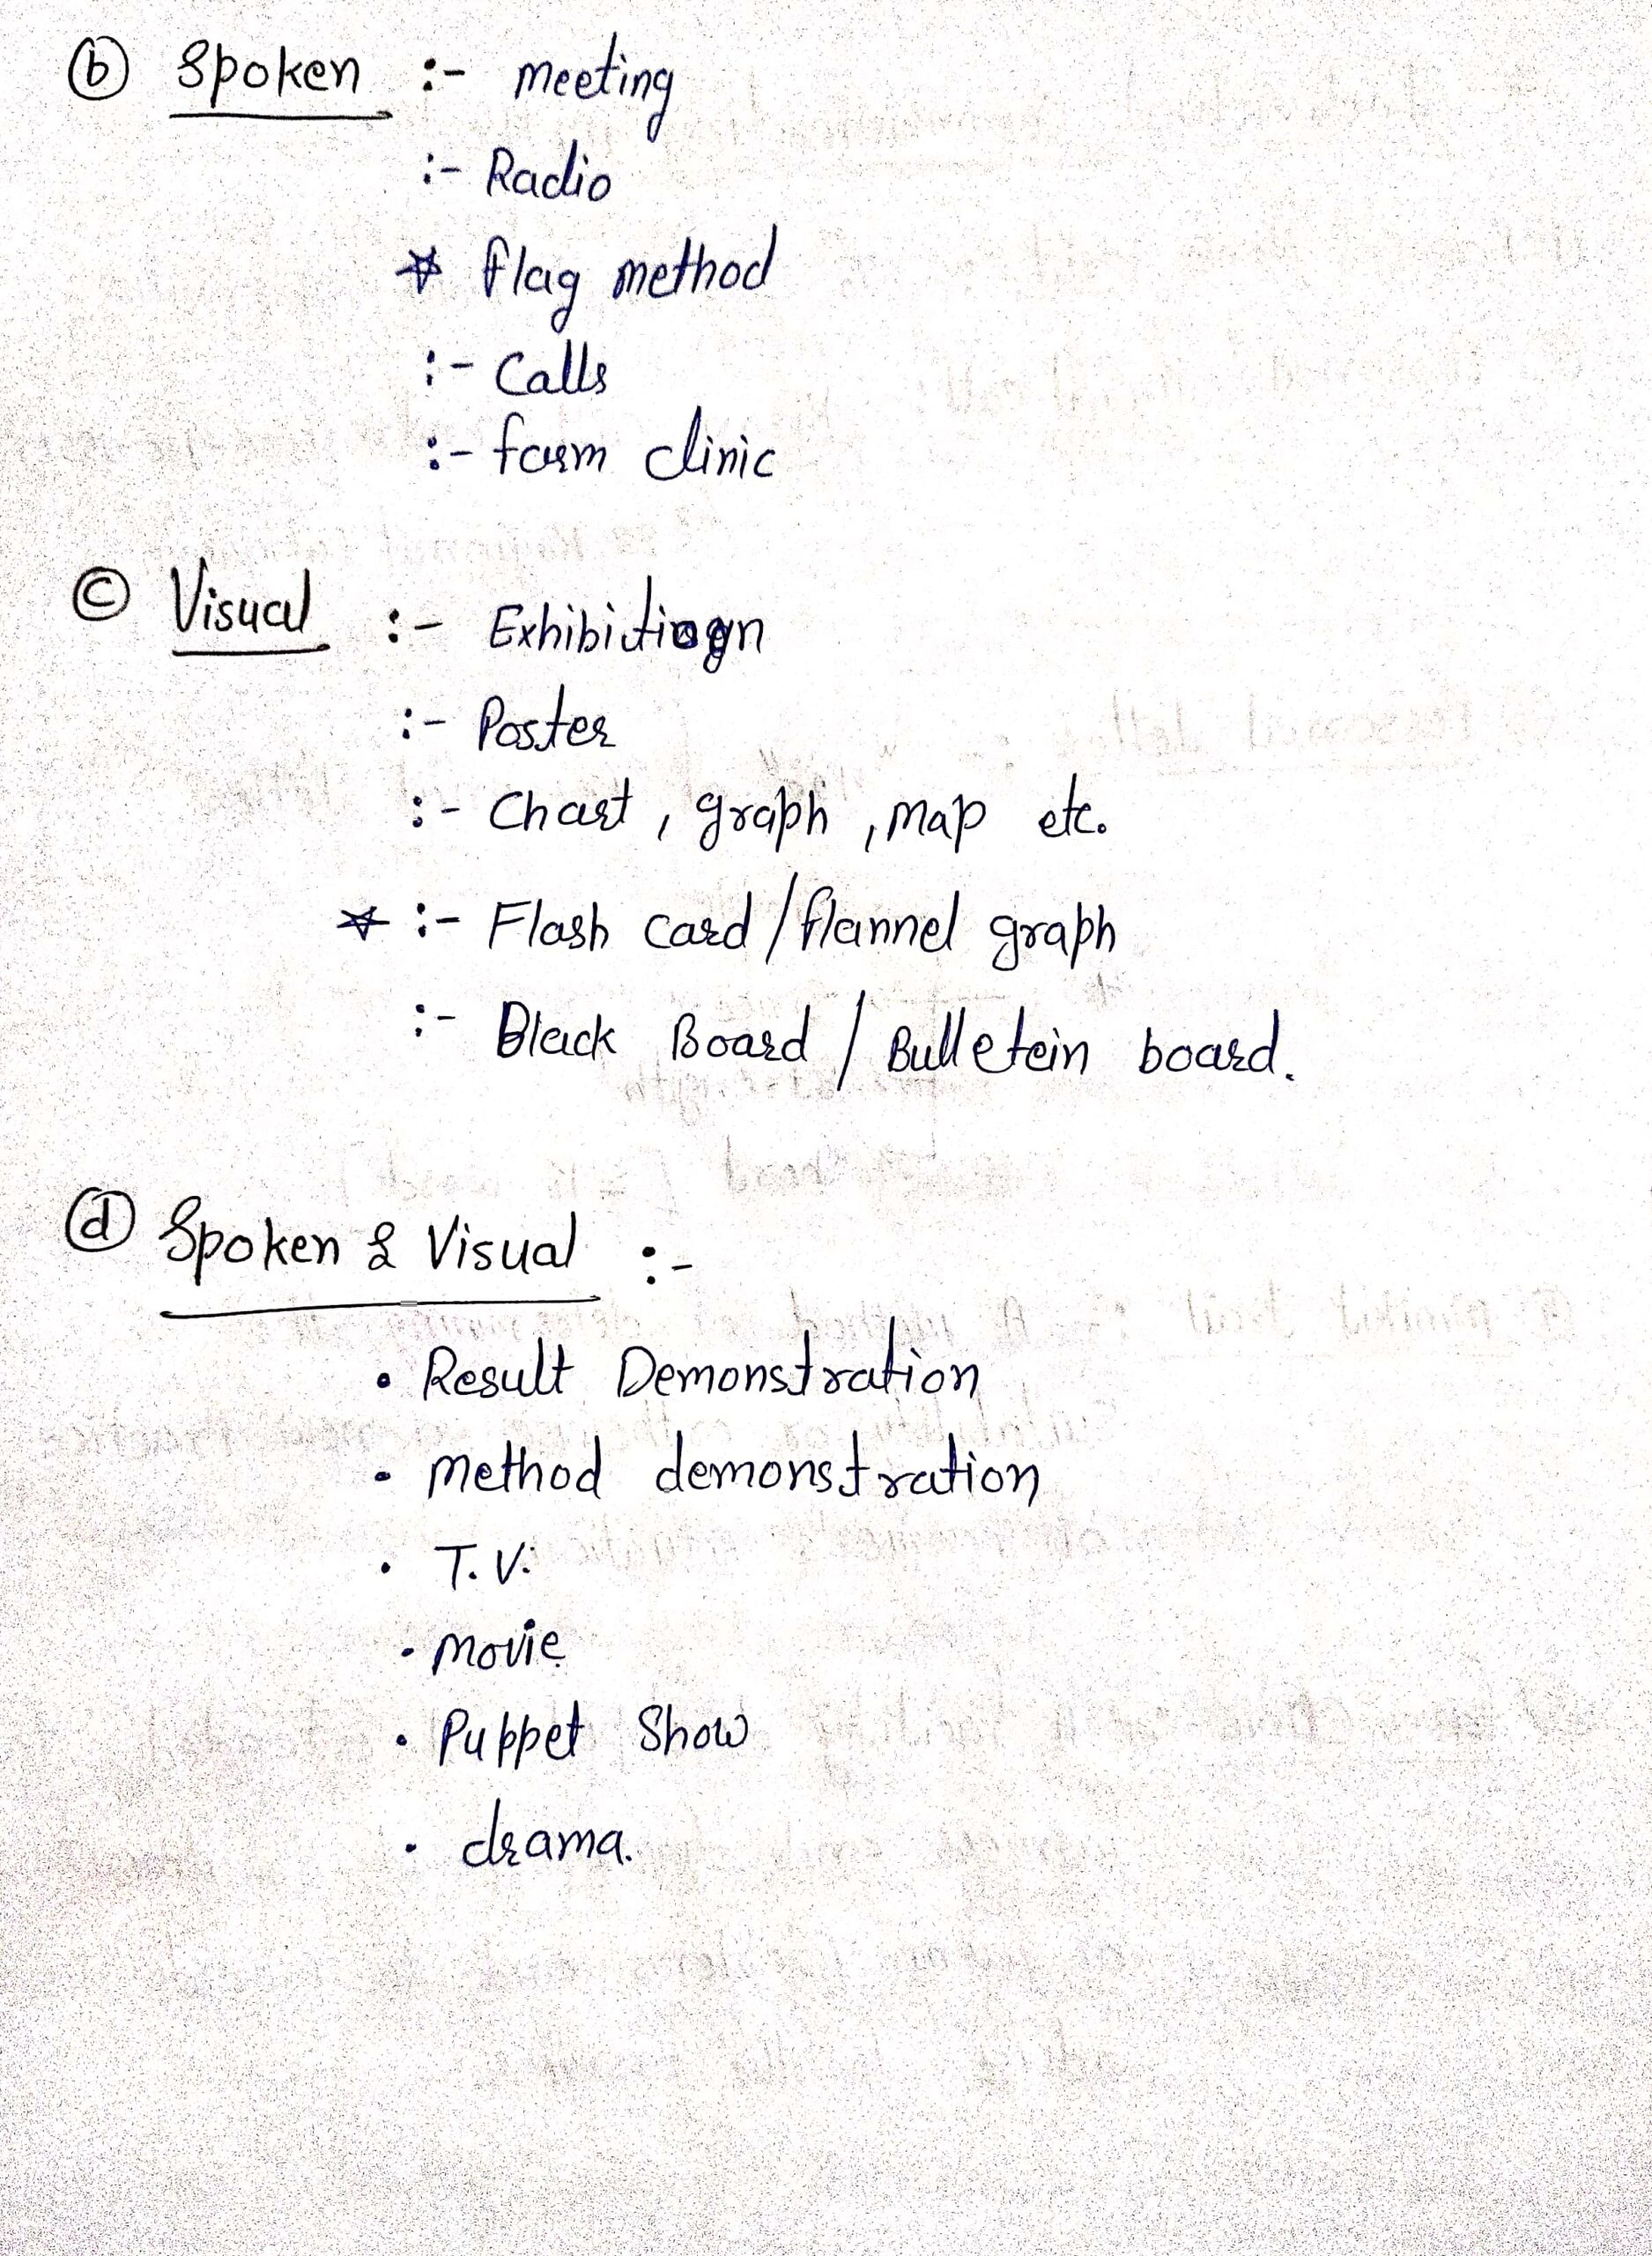 ⓑ Spoken :- meeting
:- Radio
☆ flag method
:- Calls
:- farm clinic
ⓒ Visual :- Exhibition
:- Poster
:- Chart, graph, map etc.
☆ :- Flash card / flannel graph
:- Black Board / Bulletein board.
ⓓ Spoken & Visual :-
• Result Demonstration
• Method demonstration
• T.V.
• Movie
• Puppet Show
• drama.